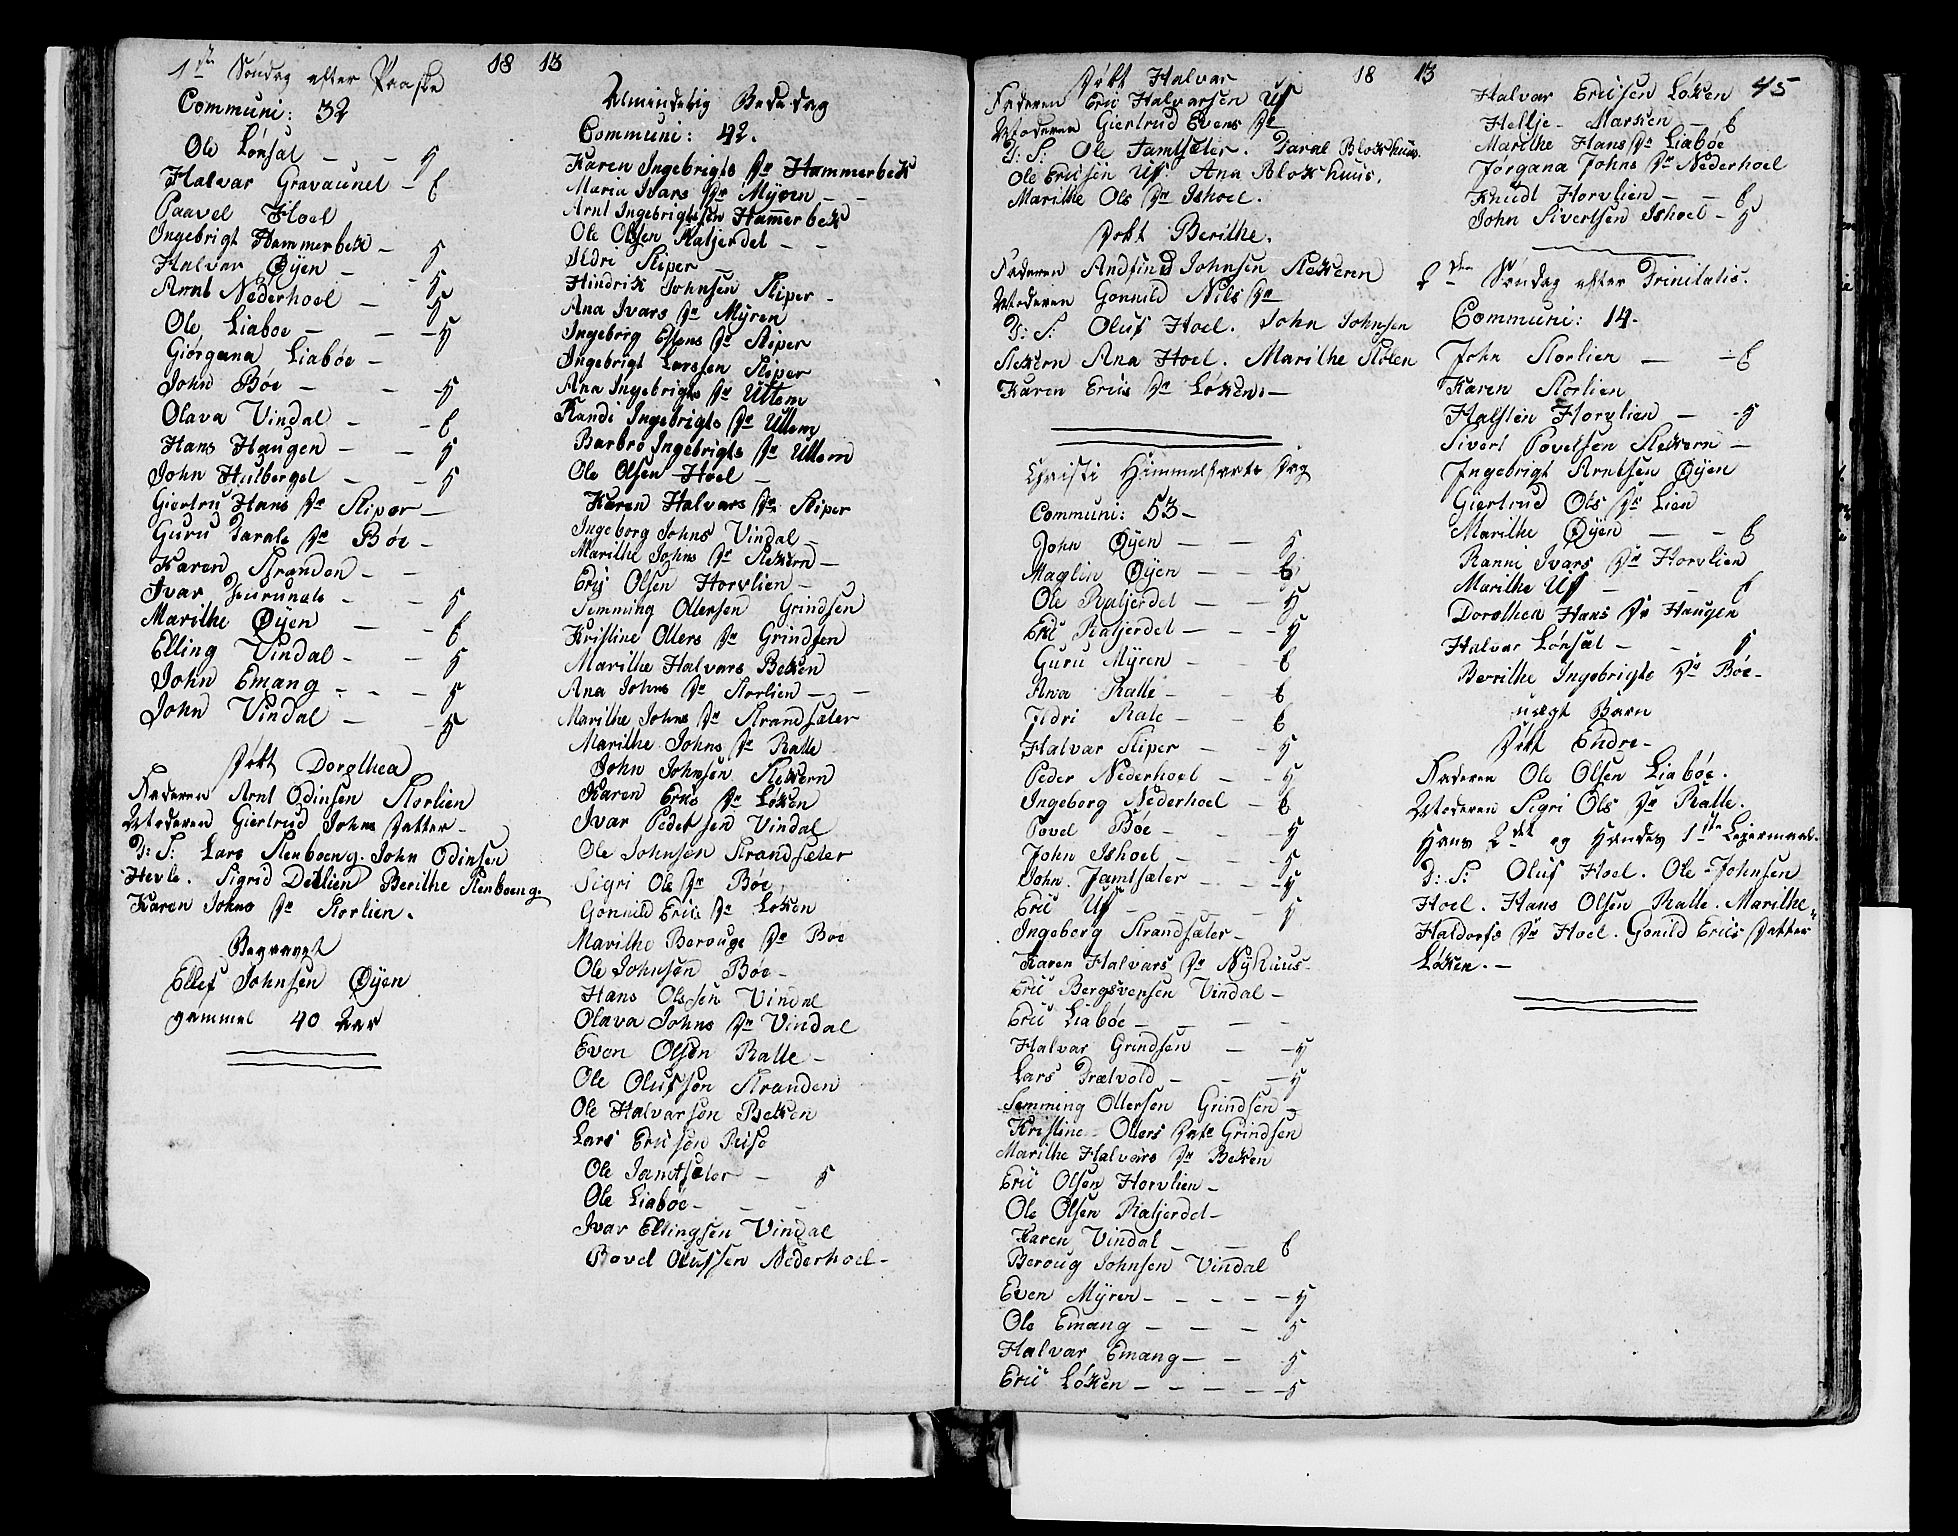 1ste Søndag efter Paaske
18 13
Communi: 32
Ole Lønsæt — — 5
Halvar Gravaunet — 6
Paavel Hoel
Ingebrigt Hammerbek — 5
Halvar Øyen — — 5
Arnt Nederhoel — 5
Ole Liaboe — — — 5
Giørgana Liabøe —
John Bøe — — — 5
Olava Vindal — — 6
Hans Haugen — — 5
John Hulberget — — 5
Giertru Hans Dr Sliper —
Guru Dr Bøe —
Karen Stranden — —
Ivar — — 5
Marithe Øyen — — 6
Elling Vindal — — 5
John Emang — — — 5
John Vindal — — 5
Døbt Dorothea
Faderen Arnt Odinsen Storlien
Moderen Giertrud Johns Datter —
T: S: Lars Stenboeng. John Odinsen
Hevle. Sigrid Detlien Berithe Stenboeng.
Karen Johns Dr Storlien.
Begravet
Ellef Johnsen Øyen
gammel 40 Aar
Almindelig Bededag
Communi: 42.
Karen Ingebrigts Dr Hammerbek
Maria Ivars Dr Myren — —
Arnt Ingebrigtsen Hamerbek
Ole Olsen Ratjerdet — —
Ildri Sliper —
Hindrik Johnsen Sliper —
Ana Ivars Dr Myren
Ingeborg Dr Sliper
Ingebrigt Larssen Sliper
Ana Ingebrigts Dr Uttem
Randi Ingebrigts Dr Uttem
Barbro Ingebrigts Dr Uttem
Ole Olsen Hoel —
Karen Halvars Dr Sliper
Ingeborg Johns Vindal —
Marithe Johns Dr Stekern —
Eric Olsen Horvlien —
Semming Ottersen Grindsen
Kristine Otters Dr Grindsen
Marithe Halvars Bekken
Ana Johns Dr Storlien — —
Marithe Johns Dr Strandsæter
Marithe Johns Dr Ratte
John Johnsen Stekern
Karen Erics Dr Løken
Ivar Pedersen Vindal
Ole Johnsen Strandsæter
Sigri Ols Dr Bøe
Gonnild Erics Dr Løken
Marithe Berouge Dr Boe
Ole Johnsen Bøe —
Hans Olssen Vindal
Olava Johns Dr Vindal
Even Olsen Ratte —
Ole Olufsøn Stranden
Ole Halvarsøn Bekken
Lars Ericsøn Riise
Ole Jamtsæter — 5
Ole Liabøe — — —
Ivar Ellingsen Vindal
Povel Olufsen Nederhoel —
Døbt Halvar
18 13
Faderen Eric Halvarsen Uf
Moderen Giertrud Evens Dr
T: S: Ole Jamtsæter. Blokhuus.
Ole Ericsen Uf Ana Blokhuus.
Marithe Ols Dr Ishoel.
Døbt Berithe.
Faderen Andfind Johnsen Stekeren
Moderen Gonnild Nils Dr
T: S: Oluf Hoel. John Johnsen
Stekern Ana Hoel. Marithe Stølen
Karen Erics Dr Løken. —
Christi Himmelfarts Dag
Communi: 53 —
John Øyen — — 5
Maglin Øyen — — 6
Ole Ratjerdet — — 5
Eric Ratjerdet — — 5
Guru Myren — — 6
Ana Ratte — — 6
Ildri Rate — — 6
Halvar Sliper — — 5
Peder Nederhoel — — 5
Ingeborg Nederhoel — 6
Povel Bøe — — — 5
John Ishoel — — — 5
John Jamtsæter — — — 5
Eric Uf — — — — 5
Ingeborg Strandsæter —
Karen Halvars Dr Nyhuus —
Eric Bergsvensen Vindal —
Eric Liabøe — — — —
Halvar Grindsen — — 5
Lars Trætvold — — — 5
Semming Ottersen Grindsen —
Kristine Otters Datr Grindsen
Marithe Halvars Dr Bekken
Eric Olsen Horvlien —
Ole Olsen Ratjerdet —
Karen Vindal — — 6
Beroug Johnsen Vindal
Even Myren — — — — 5
Ole Emang — — — 5
Halvar Emang — — 5
Eric Løken — — — — 5
45
Halvar Ericsen Løken
Heltje Marsken — 6
Marithe Hans Dr Liabøe
Jørgana Johns Dr Nederhoel
Knudt Horvlien — — 6
John Sivertsen Ishoel — 5
2den Søndag efter Trinitatis.
Communi: 14 —
John Storlien — — 6
Karen Storlien
Halsten Horvlien — — 5
Sivert Povelsen Stekern —
Ingebrigt Arntsen Øyen
Giertrud Ols Dr Lien
Marithe Øyen — — 6
Ranni Ivars Dr Horvlien
Marithe Uf — — 6
Dorothea Hans Dr Haugen
Halvar Lønsæt — — 5
Berithe Ingebrigts Dr Bøe —
uægt Barn
Døbt Endre —
Faderen Ole Olsen Liabøe.
Moderen Sigri Ols Dr Ratte.
Hans 2det og Hendes 1ste Leiermaal.
T: S: Oluf Hoel. Ole Johnsen
Hoel. Hans Olsen Ratte. Marithe
Haldorfs Dr Hoel. Gonild Erics Datter
Løken. —